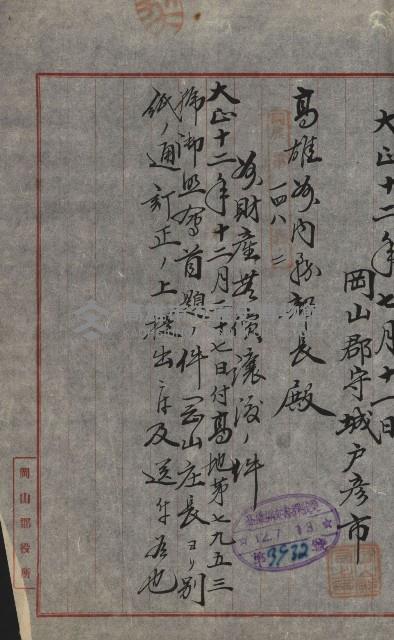 大正十二年七月十一日
岡山郡守城戸彦市
高雄州内務部長殿
一四八二
州財産無償譲渡ノ件
大正十二年十二月二十七日付高地第七九五三
號御照會首題ノ件岡山庄長ヨリ別
紙ノ通訂正ノ上提出ニ付及送付候也
岡山郡役所
12.7.13
第3932號